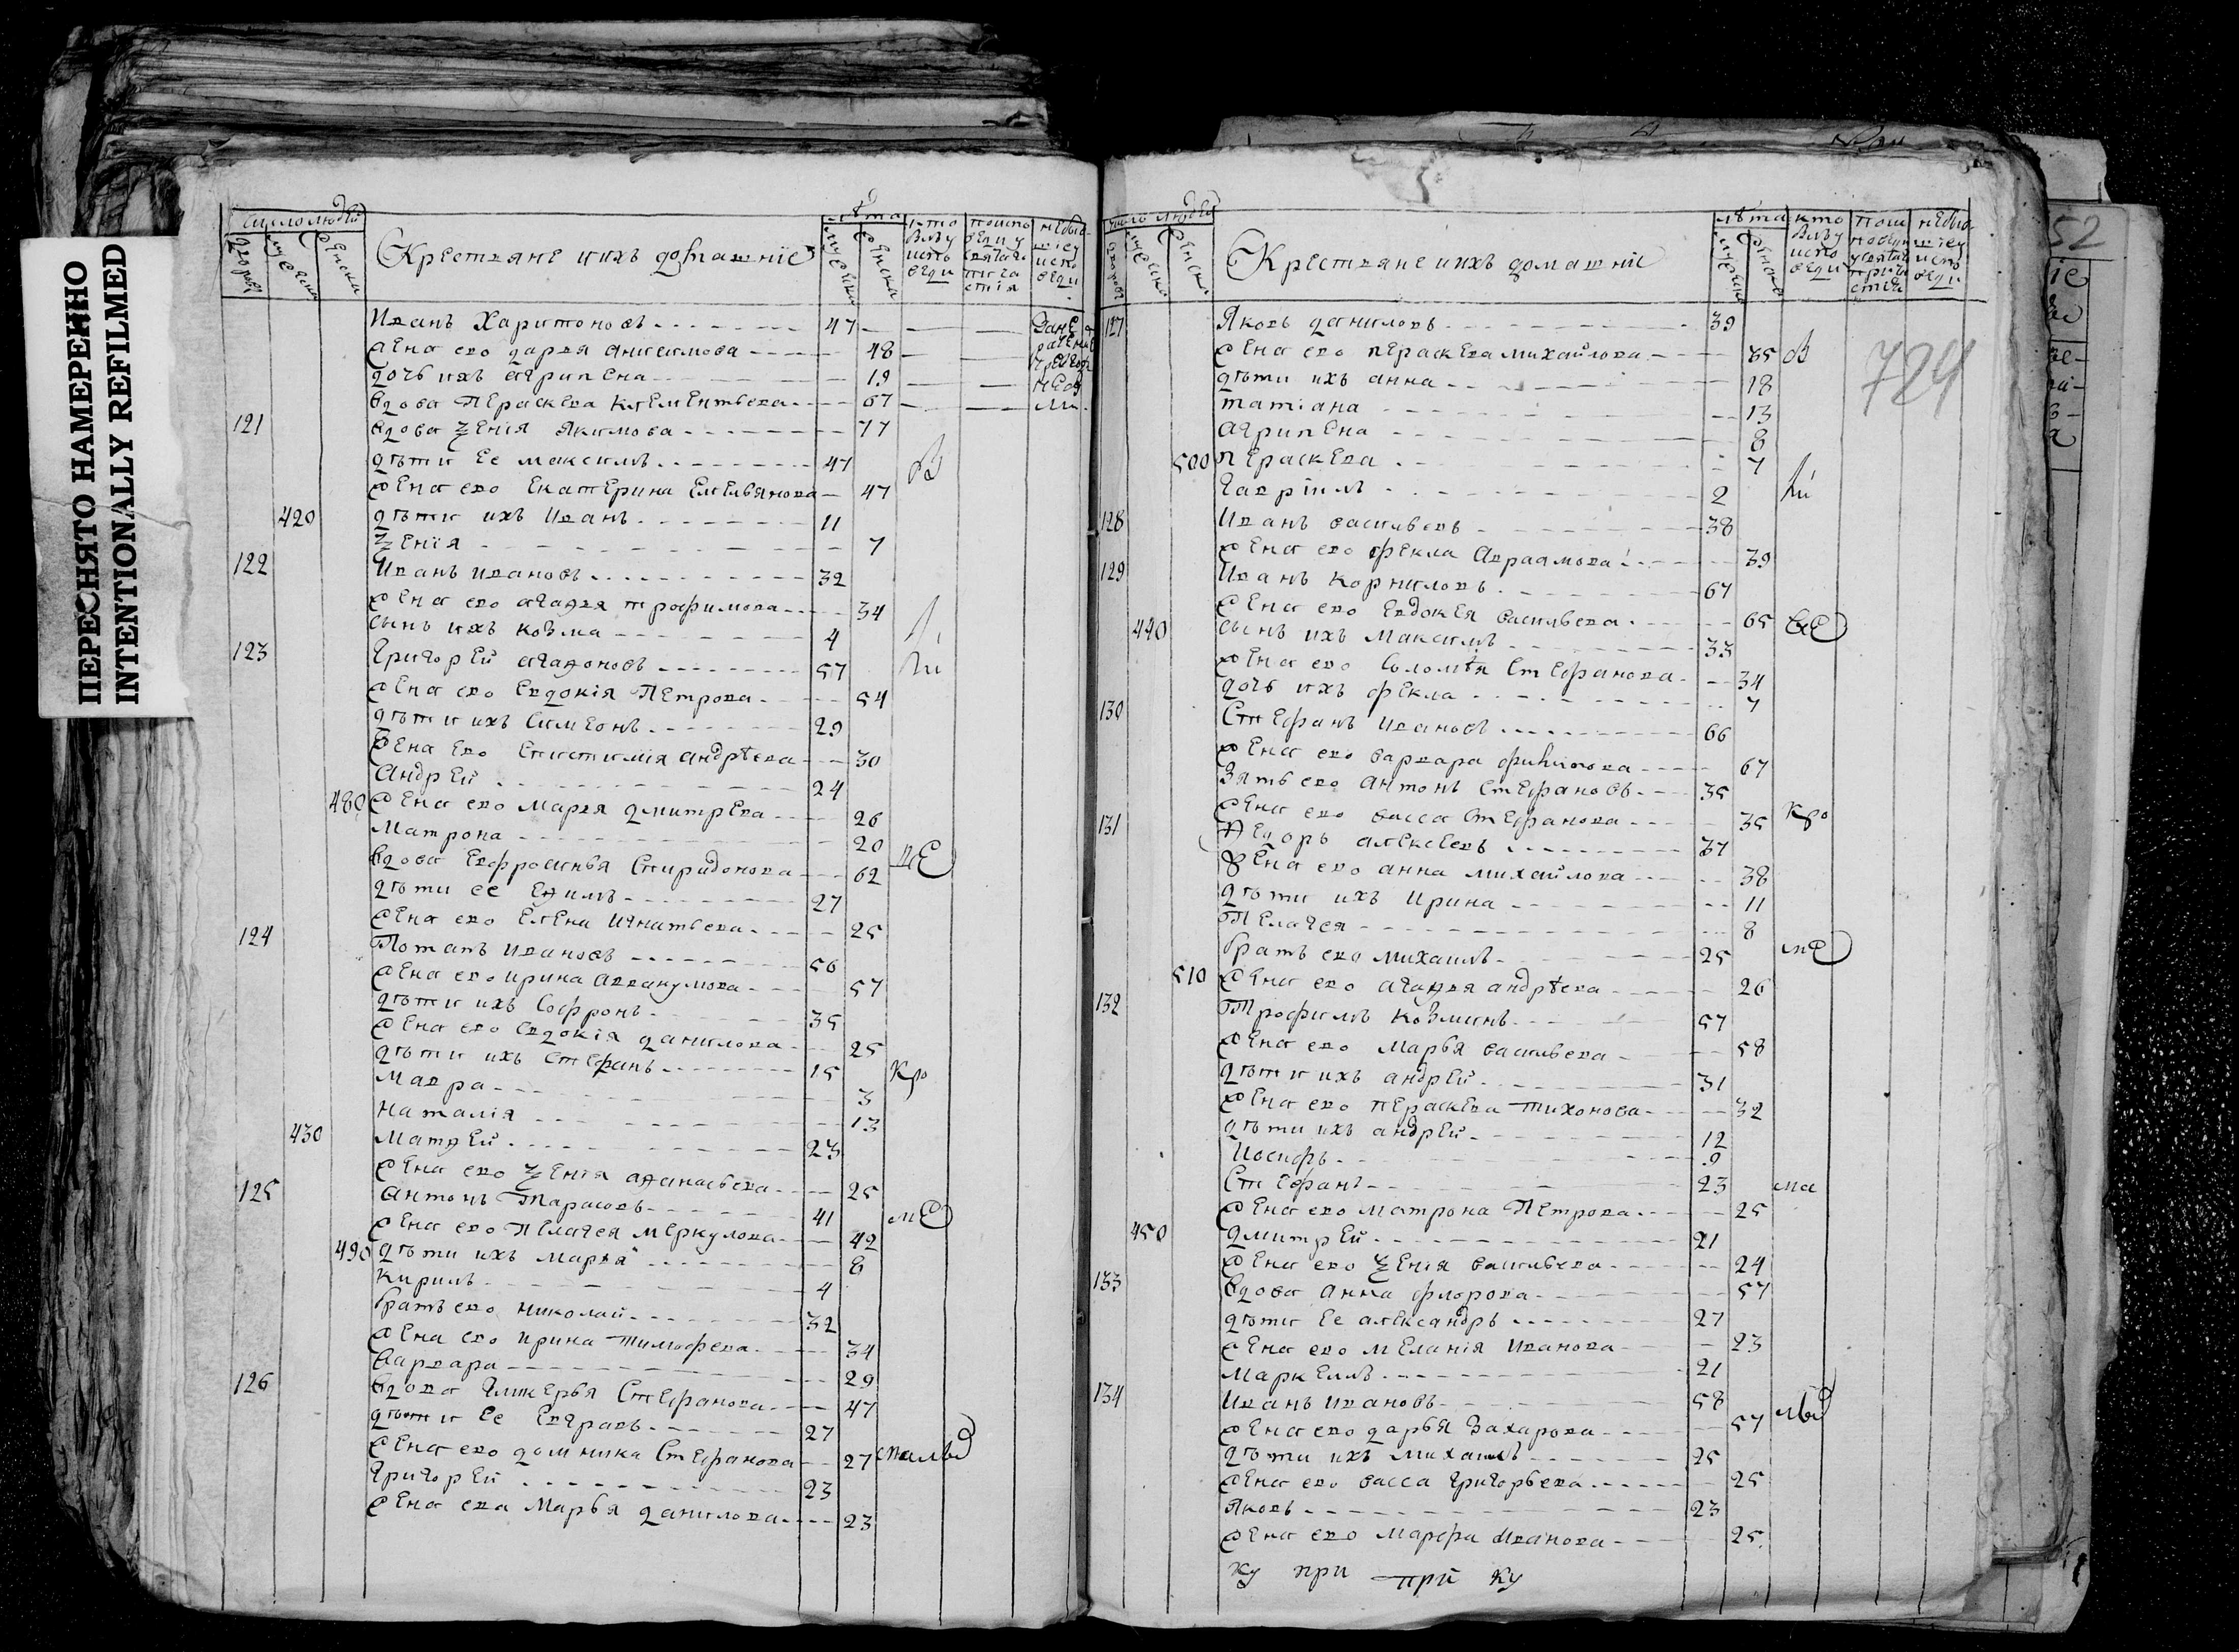 ПЕРЕСНЯТО НАМЕРЕННО
INTENTIONALLY REFILMED
число людей
лѣта
дворовъ
мужеска
женска
Крестьяне и ихъ домашніе
мужеска
женска
кто
были у
испо
веди
Иванъ Харитоновъ 47
жена ево дарья Анисимова 48
дочь ихъ агрипена 19
вдова Пераскева Клементьева 67
121 вдова Ѯенія Якимова 77
дѣти ее максимъ 47
жена ево Екатерина Емельянова 47
420 дѣти ихъ Иванъ 11
Ѯенія 7
122 Иванъ ивановъ 32
жена ево агафья трофимова 34
сынъ ихъ козма 4
123 Григорей агаѳоновъ 57
жена ево Евдокія Петрова 54
дѣти ихъ Симеонъ 29
жена Ево Епистимія андрѣева 30
Андрей 24
480 жена ево Марья дмитрева 26
Матрона 20
вдова Ефросинья Спиридонова 62
дѣти ее Еѳимъ 27
жена ево Елена Игнатьева 25
124 Потапъ ивановъ 56
жена ево ирина Аввакумова 57
дѣти ихъ Софронъ 35
жена ево Евдокія данилова 25
дѣти ихъ Стефанъ 15 кро
Мавра 3
наталія 13
430 Матѳей 23
жена ево Ѯенія аѳанасьева 25
125 антонъ Тарасовъ 41
жена ево Пелагея меркулова 42
490 дѣти ихъ Марья 6
Кирилъ 4
братъ ево николай 32
жена ево ирина тимофеева 34
варвара 29
126 вдова Гликерья Стефанова 47
дѣти ее Евграфъ 27
жена ево домника Стефанова 27
Григорей 23
жена ева Марья данилова 23
число людей
лѣта
мужеска
женска
Крестьяне и ихъ домашніе
кто
были у
испо
веди
127 Яковъ даниловъ 39
724
жена ево пераскева михайлова 35
дѣти ихъ анна 18
татіана 13
Агрипена 8
500 пераскева 7
Гавріилъ 2
128 Иванъ васильевъ 38
жена ево фекла Авраамова 39
129 Иванъ корниловъ 67
жена ево Евдокея васильева 65
440 сынъ ихъ Максимъ 33
жена ево Соломѣя Стефанова 34
дочь ихъ фекла 7
130 Стефанъ ивановъ 66
жена ево варвара филипова 67
Зять ево Антонъ Стефановъ 35
жена ево васса Стефанова 35 кро
131 Ѳедоръ алексеевъ 37
жена ево анна михайлова 38
дѣти ихъ Ирина 11
Пелагея 8
братъ ево михаилъ 25
510 жена ево агаѳья андрѣева 26
132 Трофимъ козминъ 57
жена ево Марья васильева 58
дѣти ихъ андрей 31
жена ево пераскева тихонова 32
дѣти ихъ андрей 12
Иосифъ 9
Стефанъ 23 ма
жена ево Матрона Петрова 25
450 дмитрей 21
жена ево Ѯенія васильева 24
133 вдова анна флорова 57
дѣти ее александръ 27
жена ево меланія Иванова 23
Маркеллъ 21
134 Иванъ ивановъ 58
жена ево дарья Захарова 57
дѣти ихъ михаилъ 25
жена ево васса григорьева 25
Яковъ 23
жена ево Марфа Иванова 25
ку при при ку
52